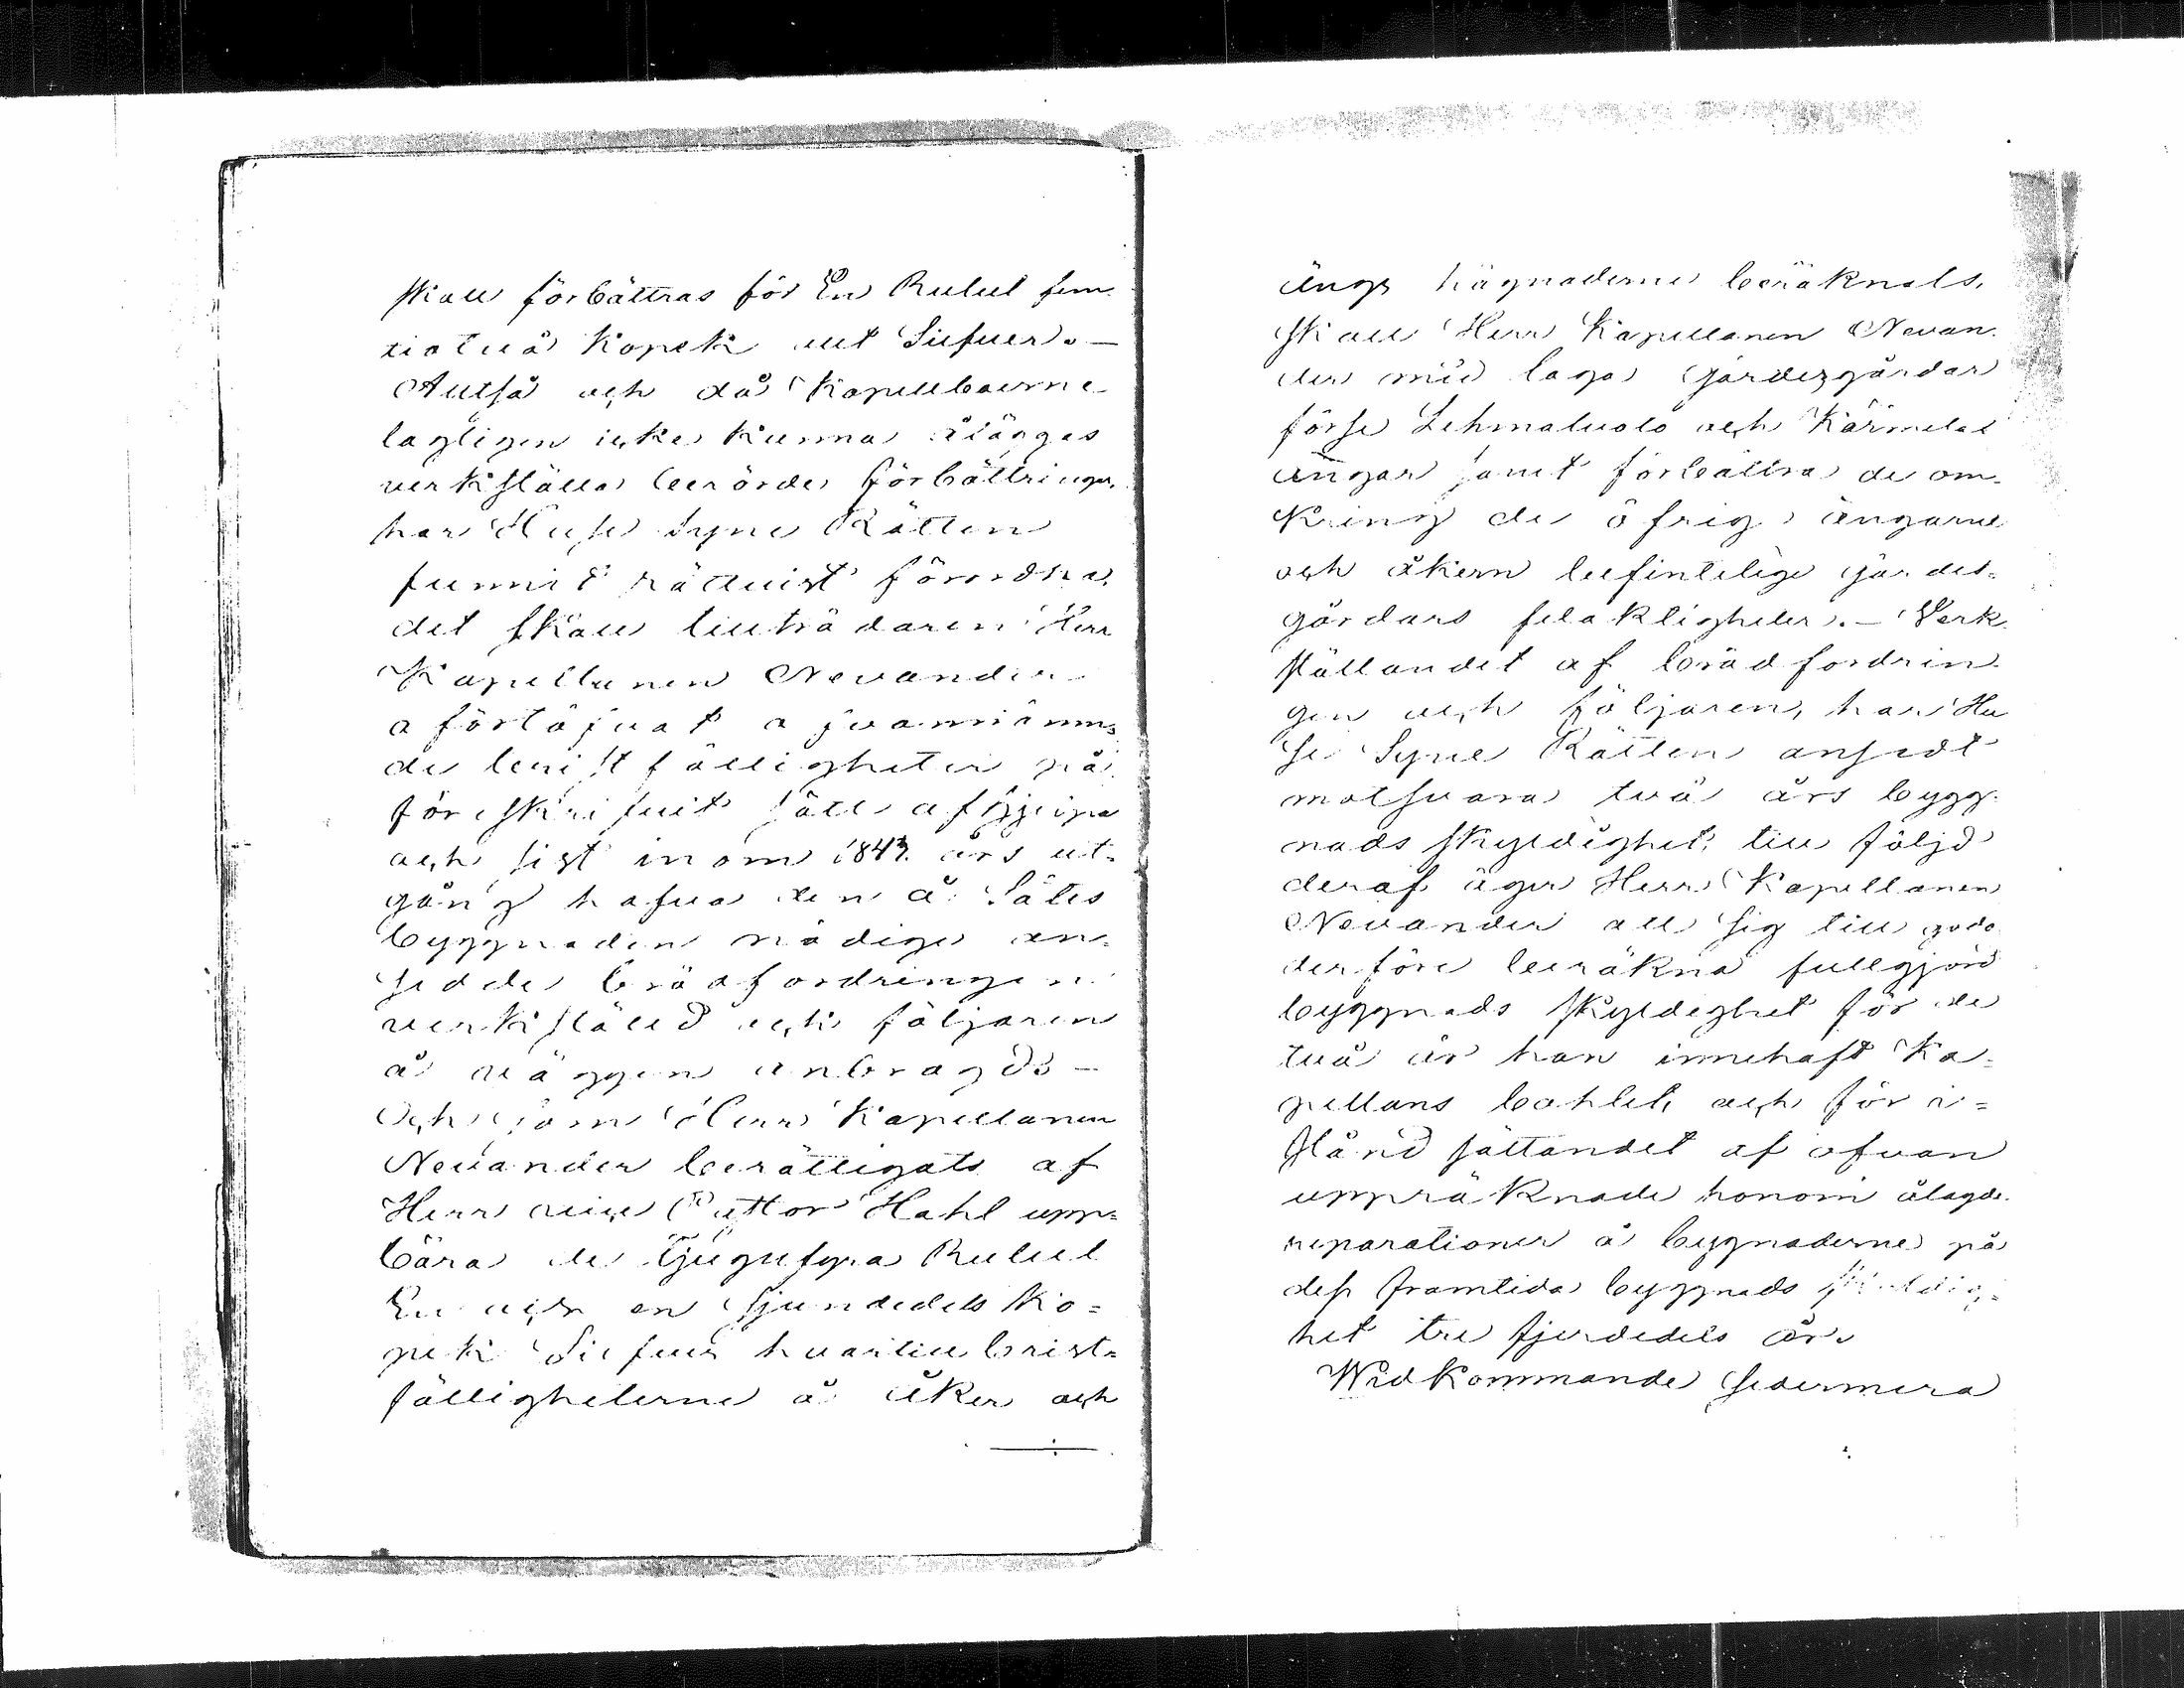 skall förbättras för En Rubel fem
tiotvå Kopek allt Silfver. —
Alltså och då Kapellboerne
lagligen icke kunna åläggas
verkställa berörde förbättringar,
har Huse Syne Rätten
funnit rättvist förordna,
det skall tillträdaren Herr
Kapellanen Nevander
oförtöfvat ofvannämn=
de bristfälligheter på
föreskrifvit sätt afhjelpa
och sist inom 1843 års ut=
gång hafva den å Sätes
byggnaden nödige an=
sedde brädfordringen
verkstäld och följaren
å väggen anbragd. —
Och som Herr Kapellanen
Nevander berättigats af
Herr Vice Pastor Hahl upp=
bära de Tjugufyra Rubel
En och en sjundedels Ko=
pek Silfver hvartill brist=
fälligheterne å åker och
ängs hägnaderne beräknats,
skall Herr Kapellanen Nevan=
der med laga gärdesgårdar
förse Lehmaluoto och Kärmelas
ängar samt förbättra de om=
kring de öfriga ängarne
och åkern befintelige gärdes=
gårdars felaktigheter. — Verk=
ställandet af brädfordrin=
gen och följaren, har Hu
se Syne Rätten ansedt
motsvara två års bygg=
nads skyldighet, till följd
deraf äger Herr Kapellanen
Nevander att sig till godo
derföre beräkna fullgjord
byggnads skyldighet för de
två år han innehaft Ka=
pellans bohlet, och för i=
stånd sättandet af ofvan
uppräknade honom ålagde
reparationer å byggnaderne på
dess framtida byggnads skyldig=
het tre fjerdedels år.
Wid kommande sedermera